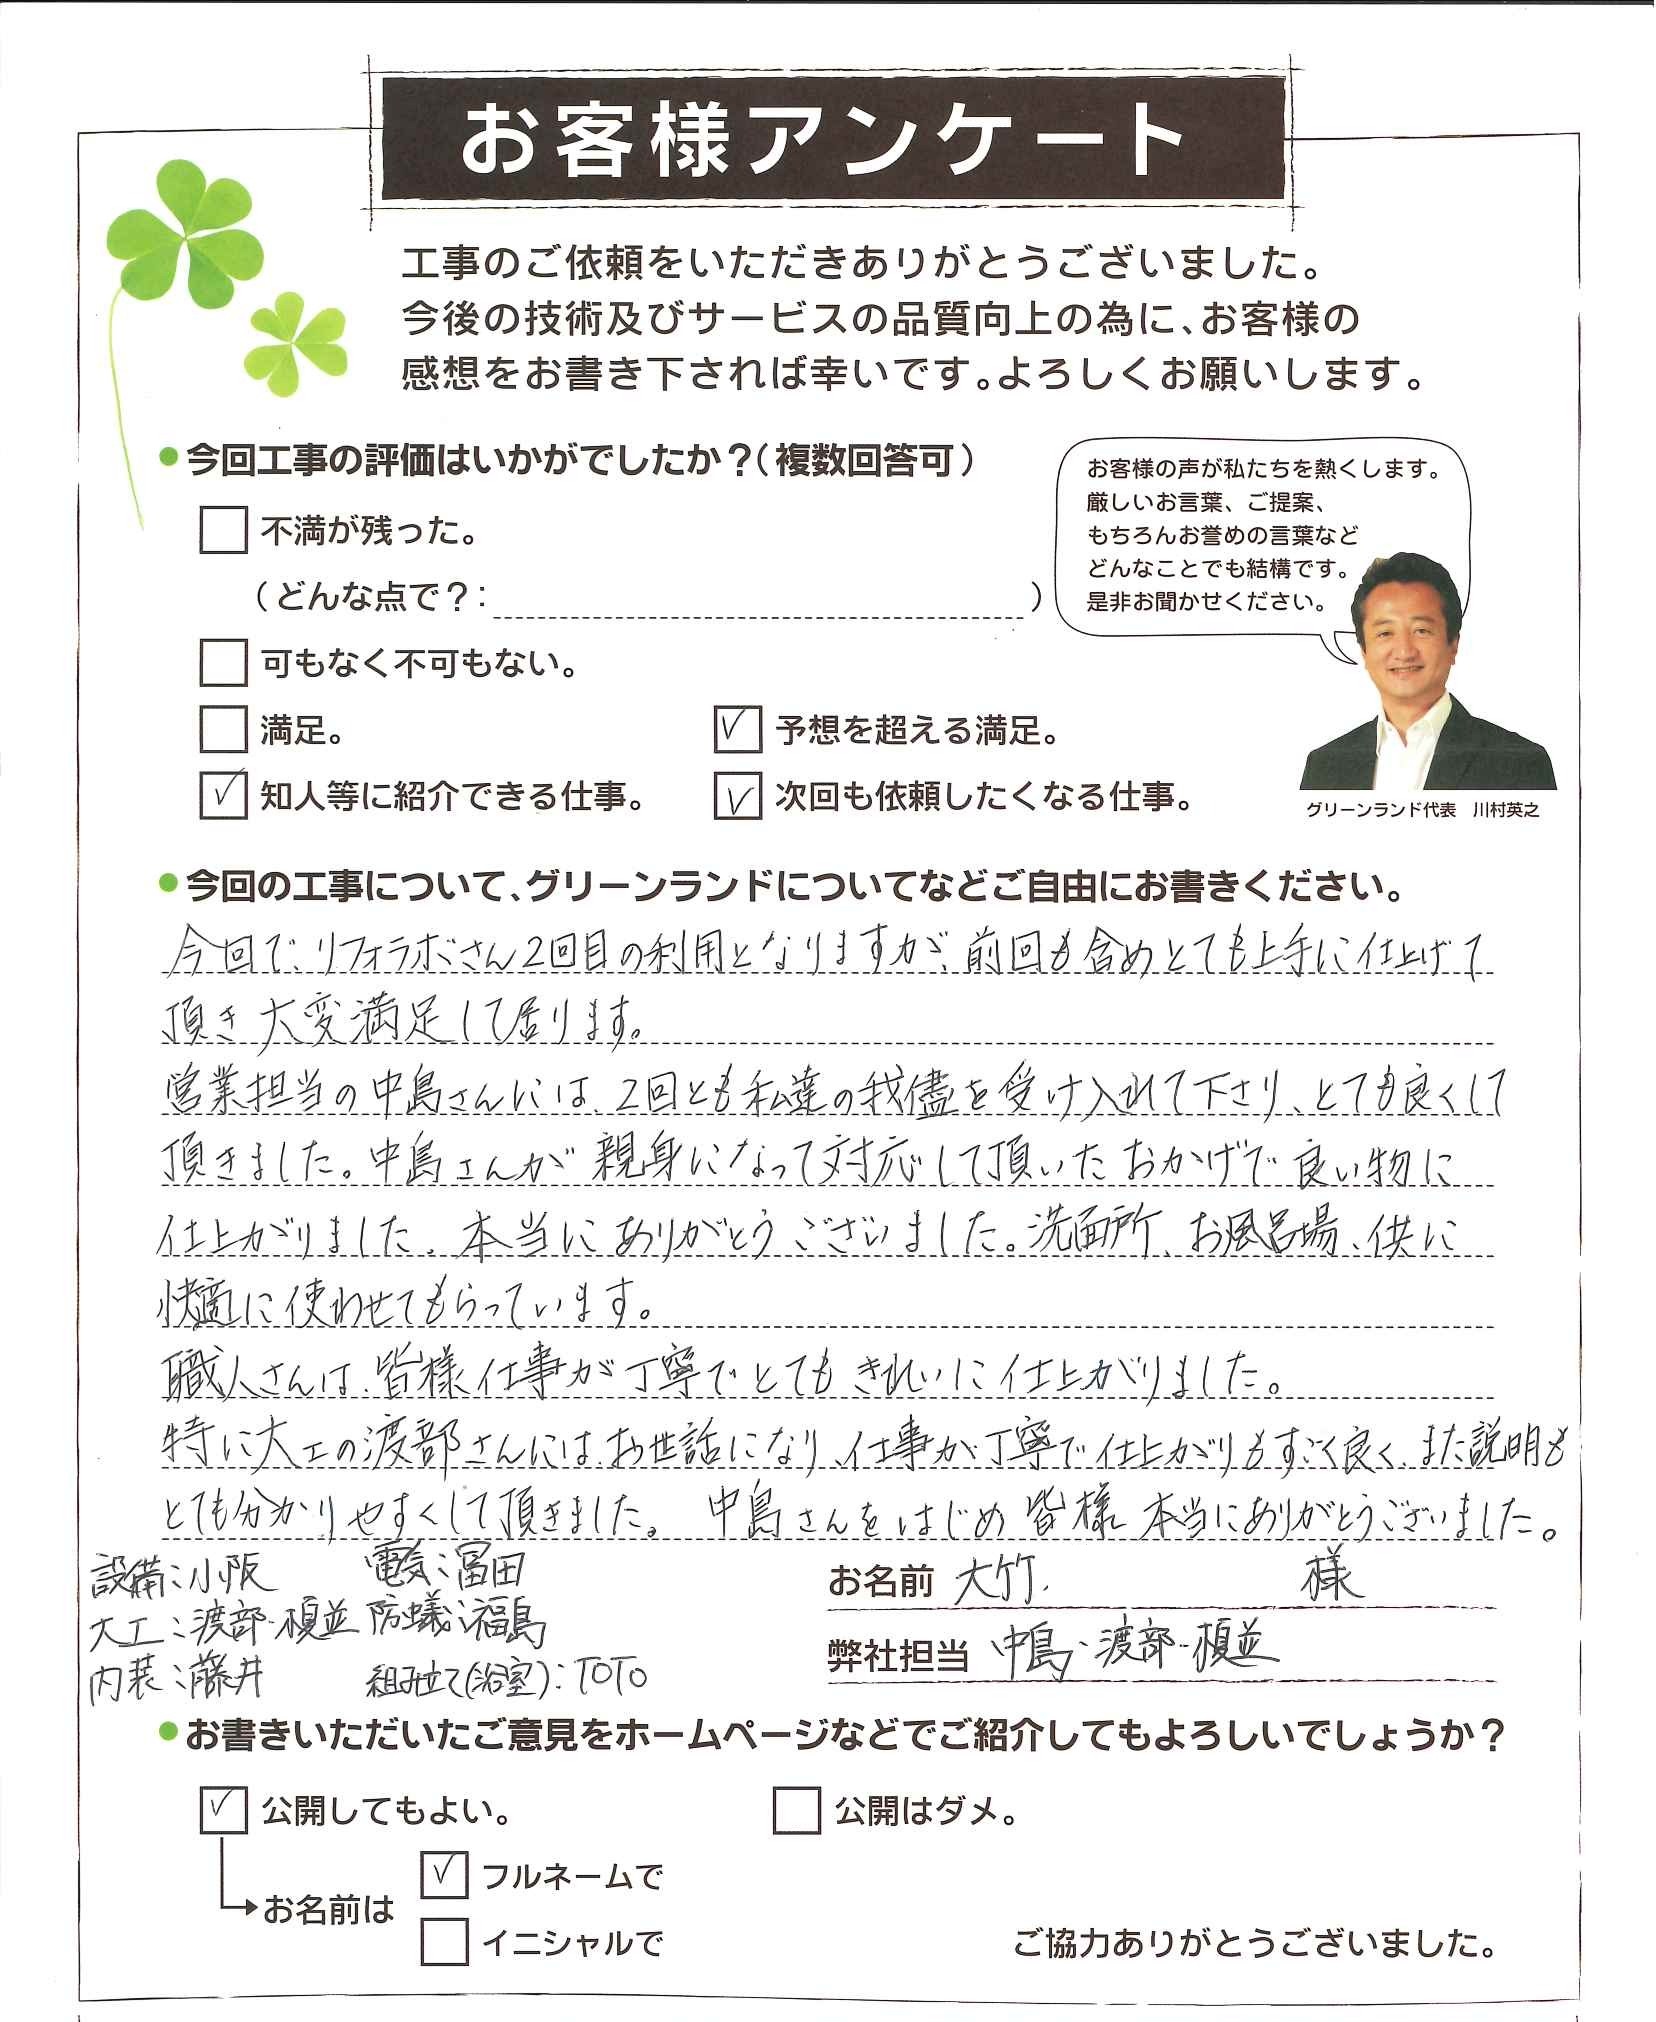 お客様アンケート
工事のご依頼をいただきありがとうございました。
今後の技術及びサービスの品質向上の為に、お客様の
感想をお書き下されば幸いです。よろしくお願いします。
●今回工事の評価はいかがでしたか？（複数回答可）
不満が残った。
（どんな点で？：　　　）
可もなく不可もない。
満足。
✓ 予想を超える満足。
✓ 知人等に紹介できる仕事。
✓ 次回も依頼したくなる仕事。
お客様の声が私たちを熱くします。
厳しいお言葉、ご提案、
もちろんお誉めの言葉など
どんなことでも結構です。
是非お聞かせください。
グリーンランド代表　川村英之
●今回の工事について、グリーンランドについてなどご自由にお書きください。
今回で、リフォラボさん2回目の利用となりますが、前回も含めとても上手に仕上げて
頂き大変満足して居ります。
営業担当の中島さんには、2回とも私達の我儘を受け入れて下さり、とても良くして
頂きました。中島さんが親身になって対応して頂いたおかげで良い物に
仕上がりました。本当にありがとうございました。洗面所、お風呂場、供に
快適に使わせてもらっています。
職人さんは、皆様仕事が丁寧でとてもきれいに仕上がりました。
特に大工の渡部さんには、お世話になり、仕事が丁寧で仕上がりもすごく良く、また説明も
とても分かりやすくして頂きました。中島さんをはじめ皆様本当にありがとうございました。
設備：小阪　電気：冨田
大工：渡部・榎並　防蟻：福島
内装：藤井　組み立て（浴室）：TOTO
お名前　大竹　様
弊社担当　中島・渡部・榎並
●お書きいただいたご意見をホームページなどでご紹介してもよろしいでしょうか？
✓ 公開してもよい。
公開はダメ。
お名前は
✓ フルネームで
イニシャルで
ご協力ありがとうございました。